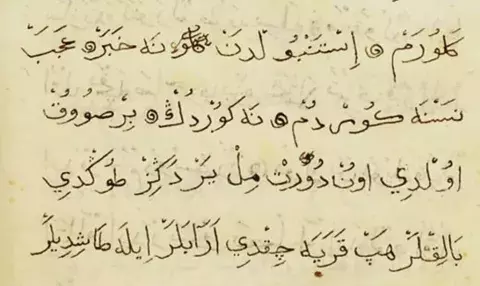 كَلُورَمْ ۞ اِسْتَنْبُولْدَنْ نَه خَبَرْ ۞ عَجَبْ
نَسْنَه كُورْدُمْ ۞ نَه كُورْدُڭْ ۞ بِرْ صُووُقْ
اوُلْدِي اوُنْ دُورْتْ مِلْ يَرْ دَكِزْ طوُڭْدِي
بَالِقْلَرْ هَپْ قَرَيَه چِقْدِي اَرَابَلَرْ اِيلَه طَاشِدِيلَرْ